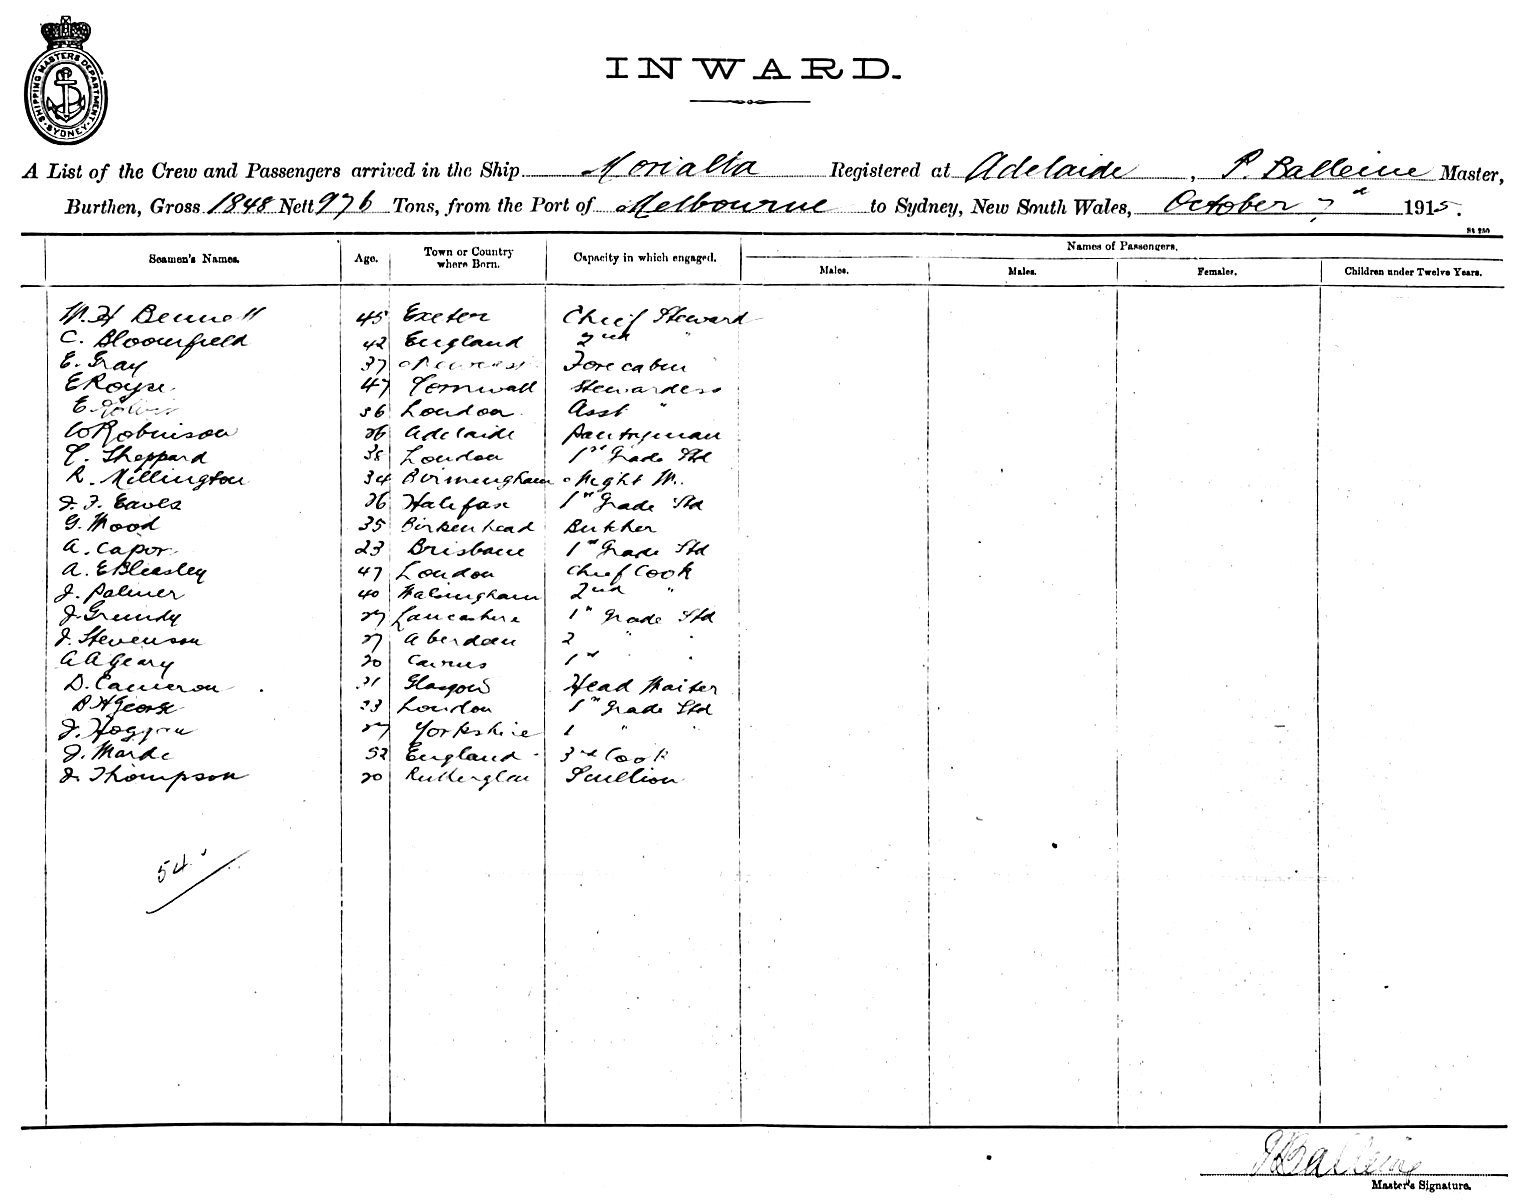 SHIPPING MASTERS DEPARTMENT. SYDNEY
INWARD.
A List of the Crew and Passengers arrived in the Ship Morialta Registered at Adelaide, P. Balleine Master,
Burthen, Gross 1848 Nett 976 Tons, from the Port of Melbourne to Sydney, New South Wales, October 7 1915.
Seamen's Names. Age. Town or Country where Born. Capacity in which engaged. Names of Passengers.
Males. Males. Females. Children under Twelve Years.
W. H Bennett 45 Exeter Chief Steward
C. Bloomfield 42 England 2nd "
E. Gray 37 Forecabin "
E Royse 47 Cornwall Stewardess
E. 36 London Asst "
W Robinson 26 Adelaide Pantryman
T. Sheppard 38 London 1st Grade Std
R. Millington 34 Birmingham Night W.
J. F. Eaves 26 Halifax 1st Grade Std
G. Wood 35 Birkenhead Butcher
A. Capor 23 Brisbane 1st Grade Std
A. E Bleasley 47 London Chief Cook
J. Palmer 40 Walsingham 2nd "
J. Grundy 27 Lancashire 1st Grade Std
J. Stevenson 27 Aberdeen 2 " "
A A Geary 20 Cairns 1st " "
D. Cameron 31 Glasgow Head Waiter
B H George 33 London 1st Grade Std
J. Hoggin 27 Yorkshire 1 " "
J. Warde 52 England 3rd Cook
J. Thompson 20 Rutherglen Scullion
54
P Balleine
Master's Signature.